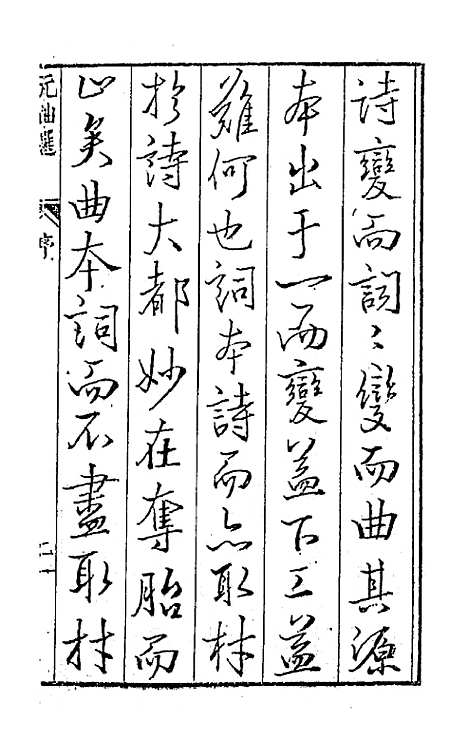 詩變而詞〻變而曲其源
本出于一而變益下工益
難何也詞本詩而亦取材
於詩大都妙在奪胎而
止矣曲本詞而不盡取材
元曲選 序 二